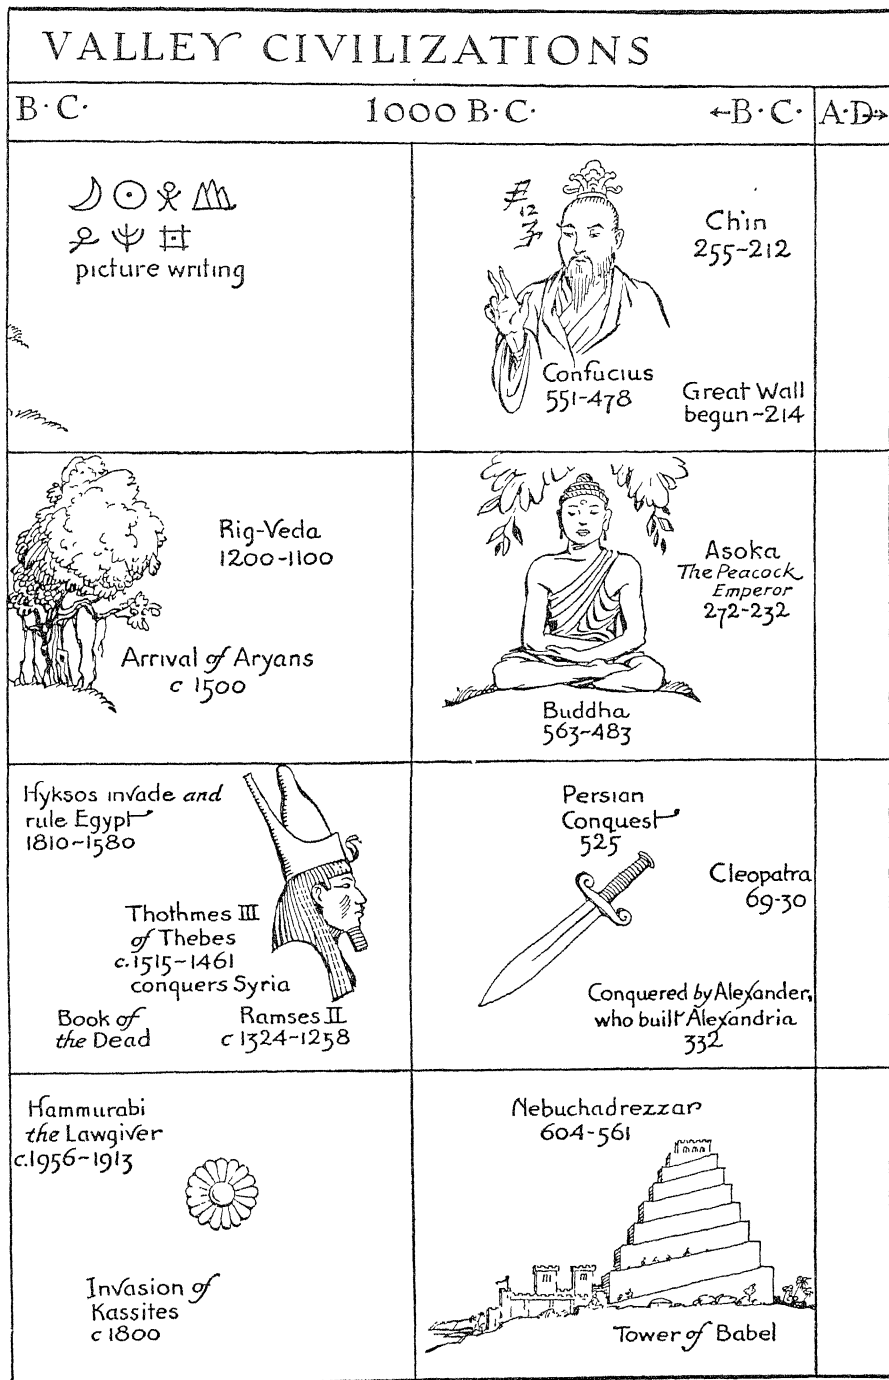 VALLEY CIVILIZATIONS
B·C· 1000 B·C· ←B·C· A·D→
picture writing
Ch'in
255-212
Confucius
551-478
Great Wall
begun-214
Rig-Veda
1200-1100
Arrival of Aryans
c 1500
Asoka
The Peacock
Emperor
272-232
Buddha
563-483
Hyksos invade and
rule Egypt
1810-1580
Thothmes III
of Thebes
c.1515-1461
conquers Syria
Book of
the Dead
Ramses II
c 1324-1258
Persian
Conquest
525
Cleopatra
69-30
Conquered by Alexander,
who built Alexandria
332
Hammurabi
the Lawgiver
c.1956-1913
Invasion of
Kassites
c 1800
Nebuchadrezzar
604-561
Tower of Babel